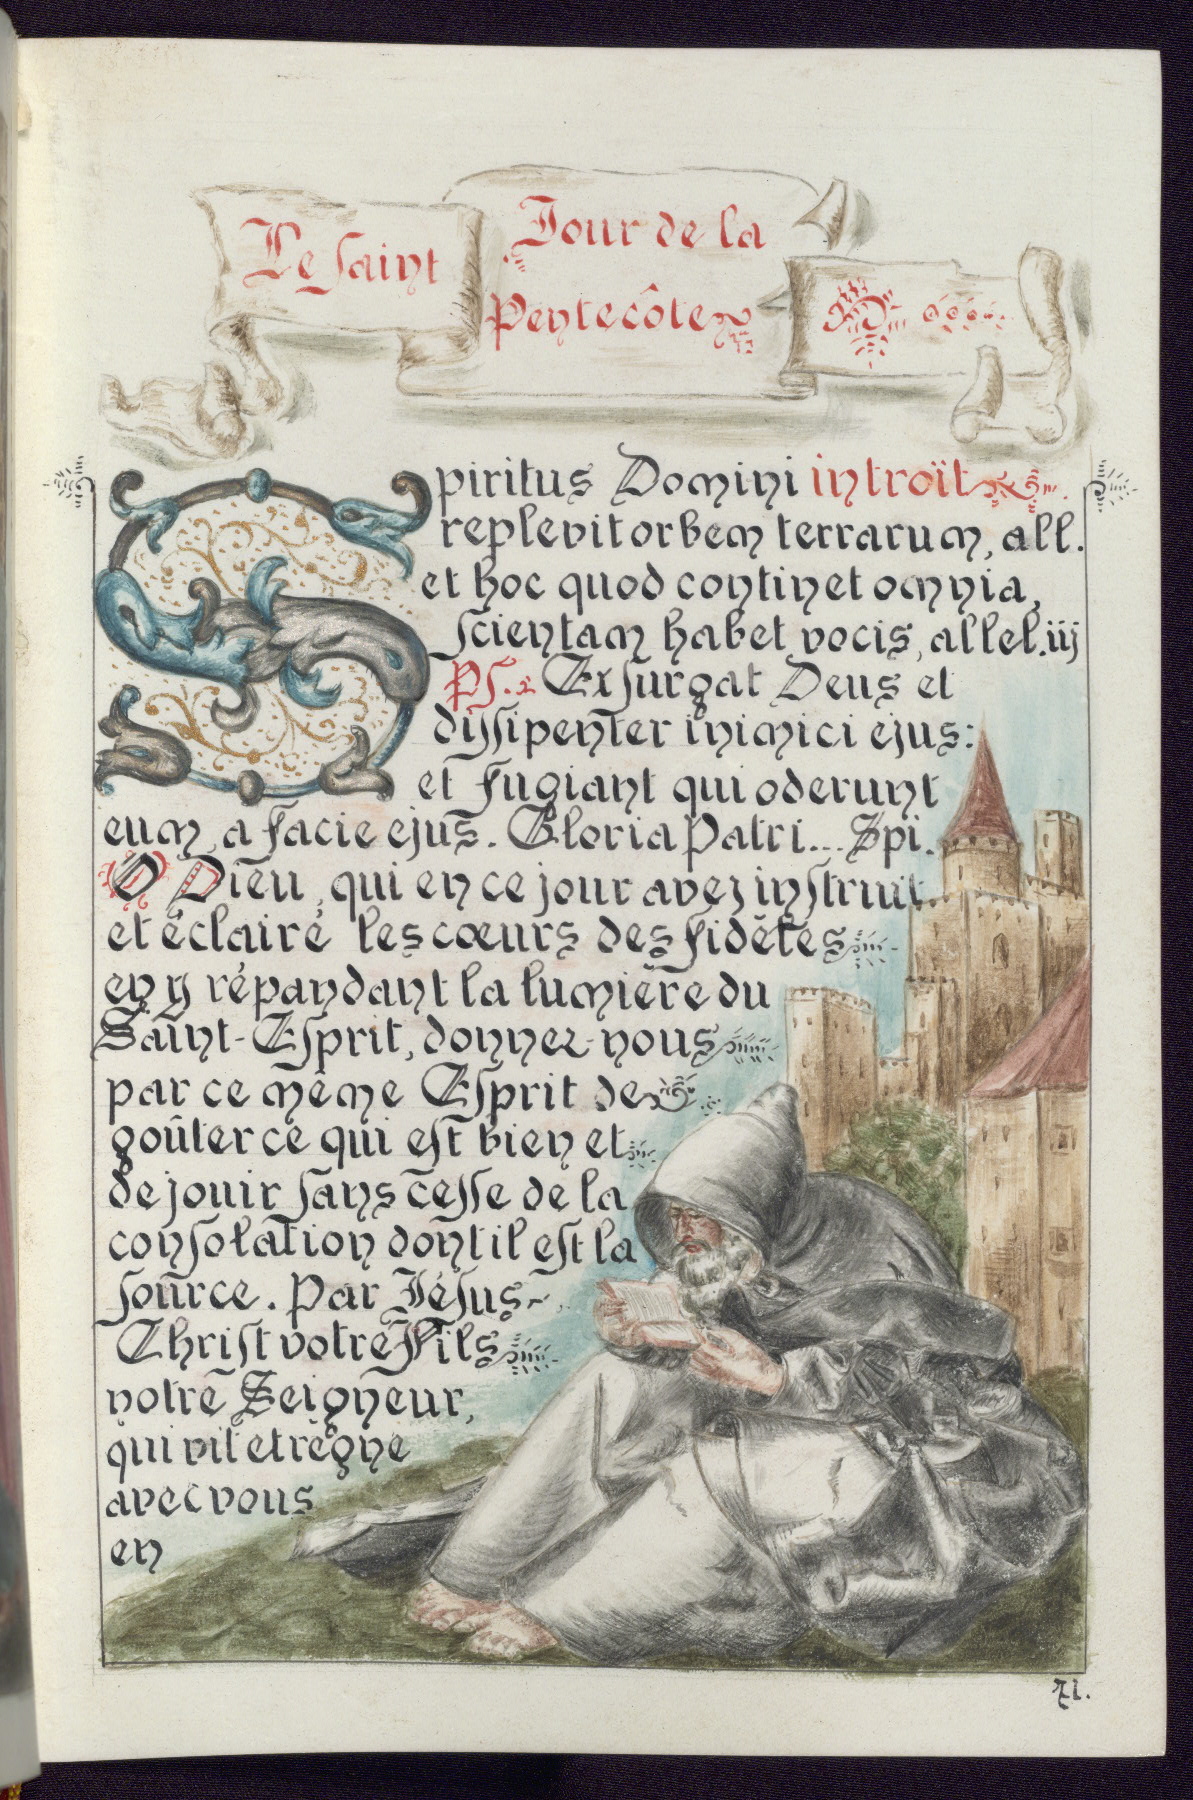 Le saint
Jour de la
Pentecôte
Spiritus Domini introït
replevit orbem terrarum, all.
et hoc quod continet omnia,
scientam habet vocis, allel. iij
Ps. Exsurgat Deus et
dissipenter inimici ejus:
et fugiant qui oderunt
eum, a facie ejus. Gloria Patri... Spi.
O Dieu, qui en ce jour avez instruit
et éclairé les cœurs des fidèles
en y répandant la lumière du
Saint-Esprit, donnez-nous
par ce même Esprit de
goûter ce qui est bien et
de jouir sans cesse de la
consolation dont il est la
source. Par Jésus-
Christ votre Fils
notre Seigneur,
qui vit et règne
avec vous
en
71.